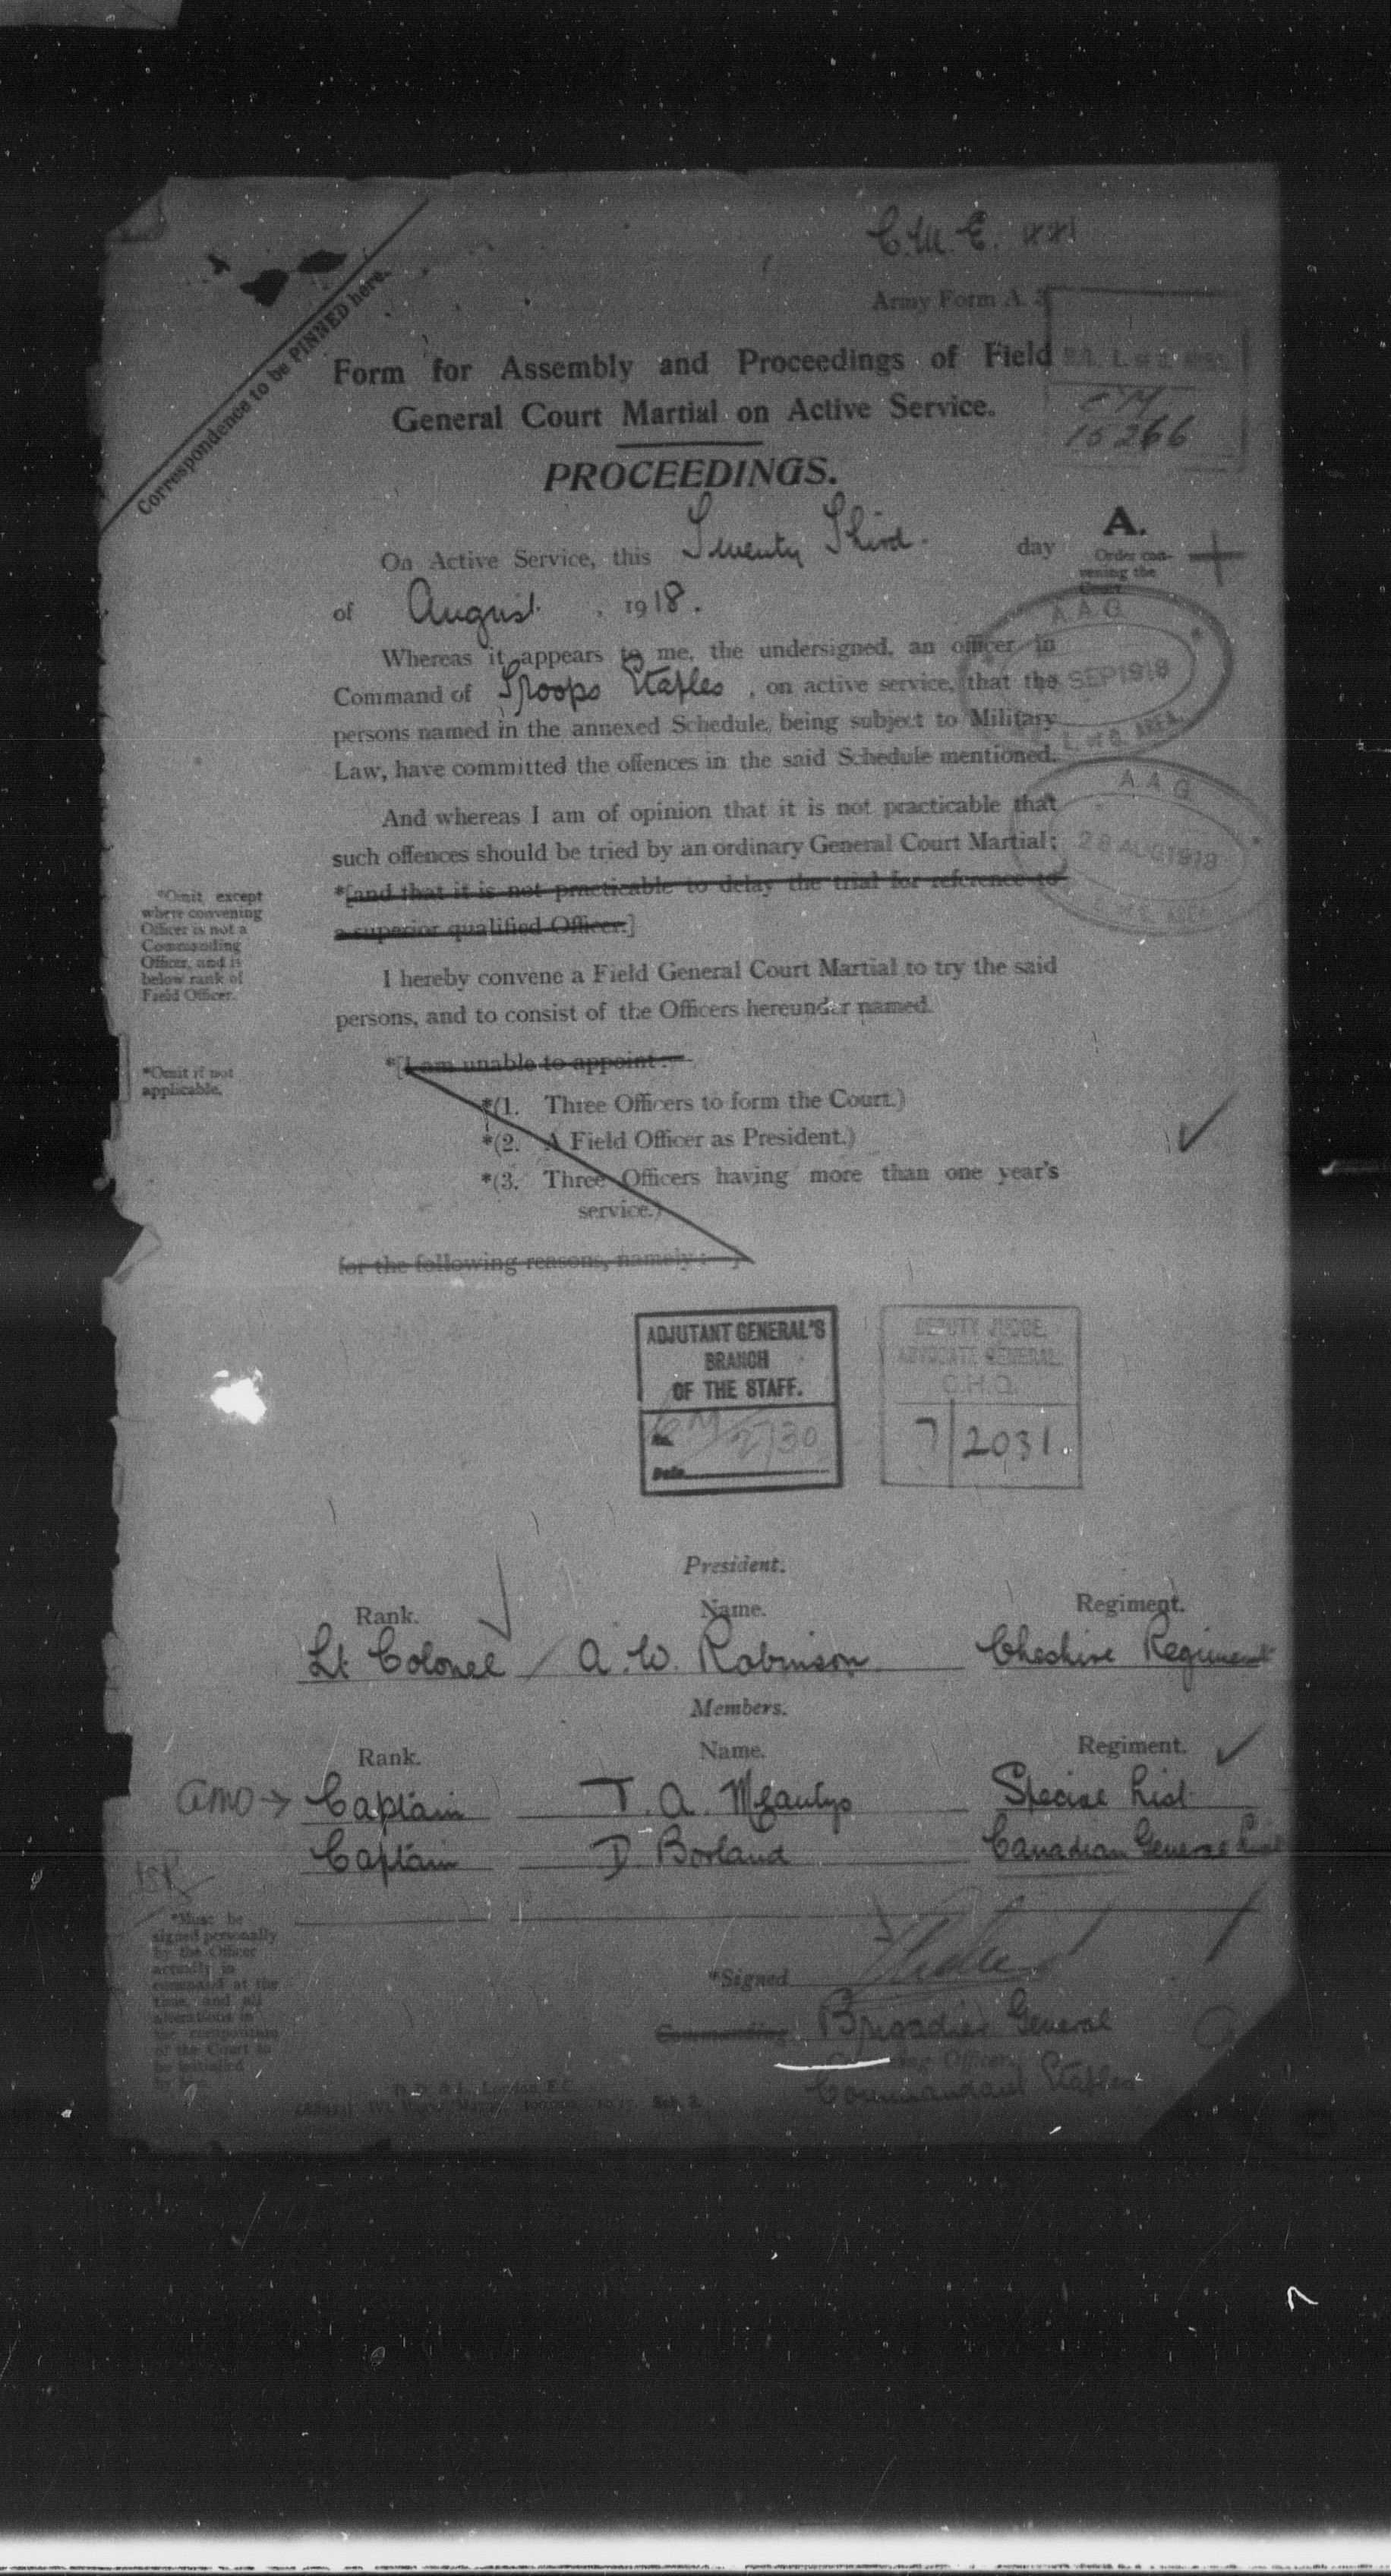 C.M.E.
Army Form A. 3
Correspondence to be PINNED here.
Form for Assembly and Proceedings of Field
General Court Martial on Active Service.
L. of C. AREA
CM
15266
PROCEEDINGS.
A.
Order con-
vening the
Court
On Active Service, this Twenty Third. day
of August. , 1918.
Whereas it appears to me, the undersigned, an officer in
Command of Troops Etaples , on active service, that the
persons named in the annexed Schedule, being subject to Military
Law, have committed the offences in the said Schedule mentioned.
A A G
SEP 1918
L. of C. AREA
And whereas I am of opinion that it is not practicable that
such offences should be tried by an ordinary General Court Martial;
*[and that it is not practicable to delay the trial for reference to
a superior qualified Officer.]
A A G
28 AUG 1918
L. of C. AREA
*Omit except
where convening
Officer is not a
Commanding
Officer, and is
below rank of
Field Officer.
I hereby convene a Field General Court Martial to try the said
persons, and to consist of the Officers hereunder named.
*Omit if not
applicable.
*[I am unable to appoint :—
*(1. Three Officers to form the Court.)
*(2. A Field Officer as President.)
*(3. Three Officers having more than one year's
service.)
for the following reasons, namely :— ]
ADJUTANT GENERAL'S
BRANCH
OF THE STAFF.
No. CM/2730
Date
DEPUTY JUDGE
ADVOCATE GENERAL
G.H.Q.
7/2031.
President.
Rank. Name. Regiment.
Lt Colonel A. W. Robinson Cheshire Regiment
Members.
Rank. Name. Regiment.
Captain T. A. Special List
Captain D Borland Canadian General List
*Must be
signed personally
by the Officer
actually in
command at the
time, and all
alterations in
the composition
of the Court to
be initialled
by him.
*Signed
Commanding Brigadier General
Officer
Commandant Etaples